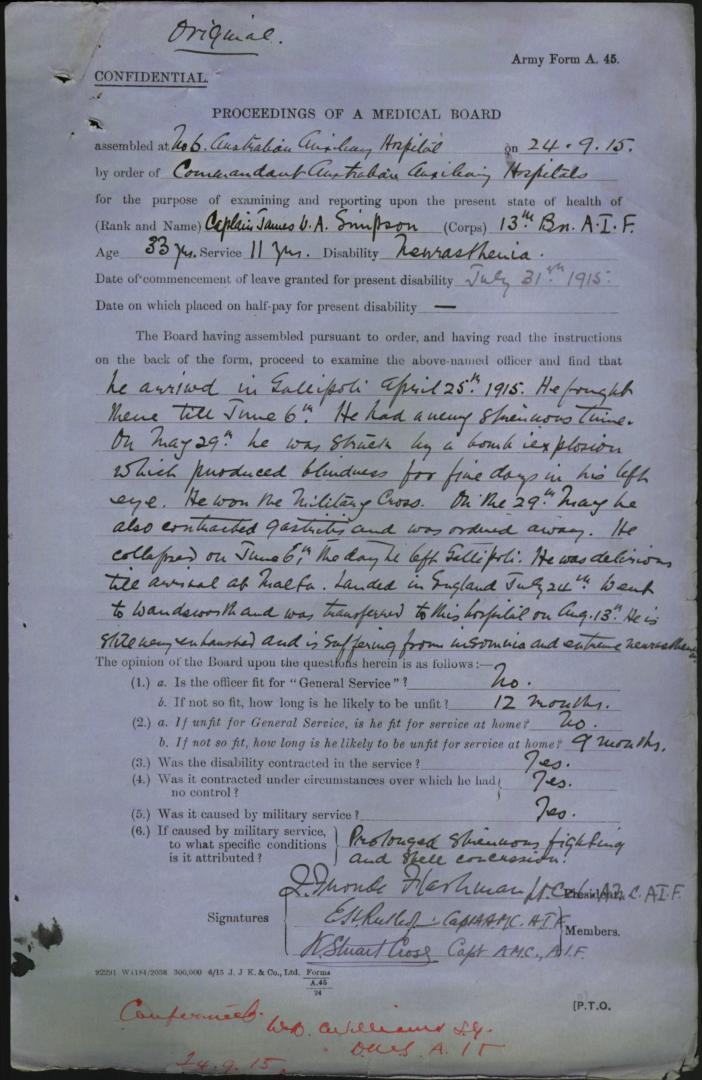 Original.
Army Form A. 45.
CONFIDENTIAL.
PROCEEDINGS OF A MEDICAL BOARD
assembled at No 6. Australian Auxiliary Hospital on 24.9.15.
by order of Commandant Australian Auxiliary Hospitals
for the purpose of examining and reporting upon the present state of health of
(Rank and Name) Captain James W. A. Simpson (Corps) 13th Bn. A.I.F.
Age 33 yrs. Service 11 yrs. Disability Neurasthenia.
Date of commencement of leave granted for present disability July 31st 1915
Date on which placed on half-pay for present disability —
The Board having assembled pursuant to order, and having read the instructions
on the back of the form, proceed to examine the above-named officer and find that
he arrived in Gallipoli April 25th 1915. He fought
there till June 6th. He had a very strenuous time.
On May 29th he was struck by a bomb explosion
which produced blindness for five days in his left
eye. He won the Military Cross. On the 29th May he
also contracted gastritis and was ordered away. He
collapsed on June 6th, the day he left Gallipoli. He was delirious
till arrival at Malta. Landed in England July 24th. Went
to Wandsworth and was transferred to this hospital on Aug. 13th. He is
still very exhausted and is suffering from insomnia and extreme neurasthenia
The opinion of the Board upon the questions herein is as follows:—
(1.) a. Is the officer fit for "General Service"? No.
b. If not so fit, how long is he likely to be unfit? 12 months.
(2.) a. If unfit for General Service, is he fit for service at home? No.
b. If not so fit, how long is he likely to be unfit for service at home? 9 months.
(3.) Was the disability contracted in the service? Yes.
(4.) Was it contracted under circumstances over which he had no control? Yes.
(5.) Was it caused by military service? Yes.
(6.) If caused by military service, to what specific conditions is it attributed? Prolonged strenuous fighting
and shell concussion.
Signatures
J. Froude Flashman Lt. Col. A.M.C. A.I.F. President.
Capt AAMC. A.I.F.
Members.
N. Stuart Cross Capt A.M.C., A.I.F.
92291 W4184/2038 300,000 6/15 J. J. K. & Co., Ltd. Forms A.45 24
[P.T.O.
Confirmed.
W.D. C. Williams S.G.
D.M.S. A.I.F
24.9.15.